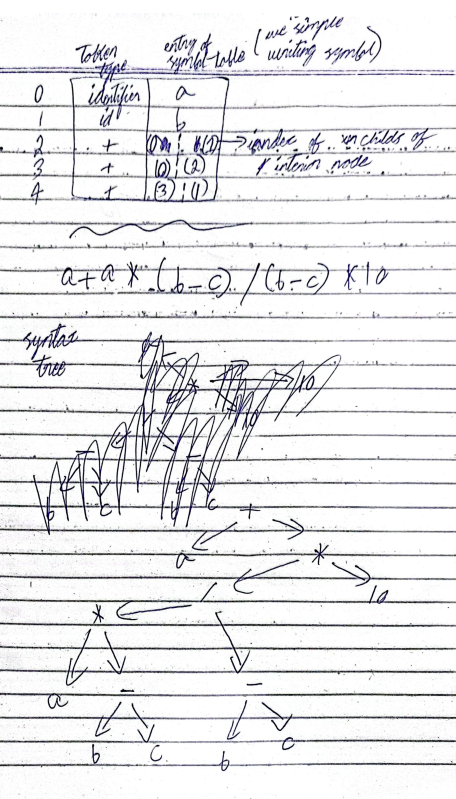 Token type entry of symbol table (we simple writing symbol)
0 identifier a
1 id b
2 + (0) (1) → index of childs of interior node
3 + (0) (2)
4 + (3) (1)
a + a * (b - c) / (b - c) * 10
syntax tree
+
a *
/ 10
*
a - -
b c b c